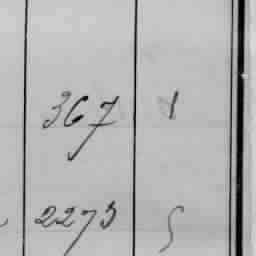 367 1
2273 5